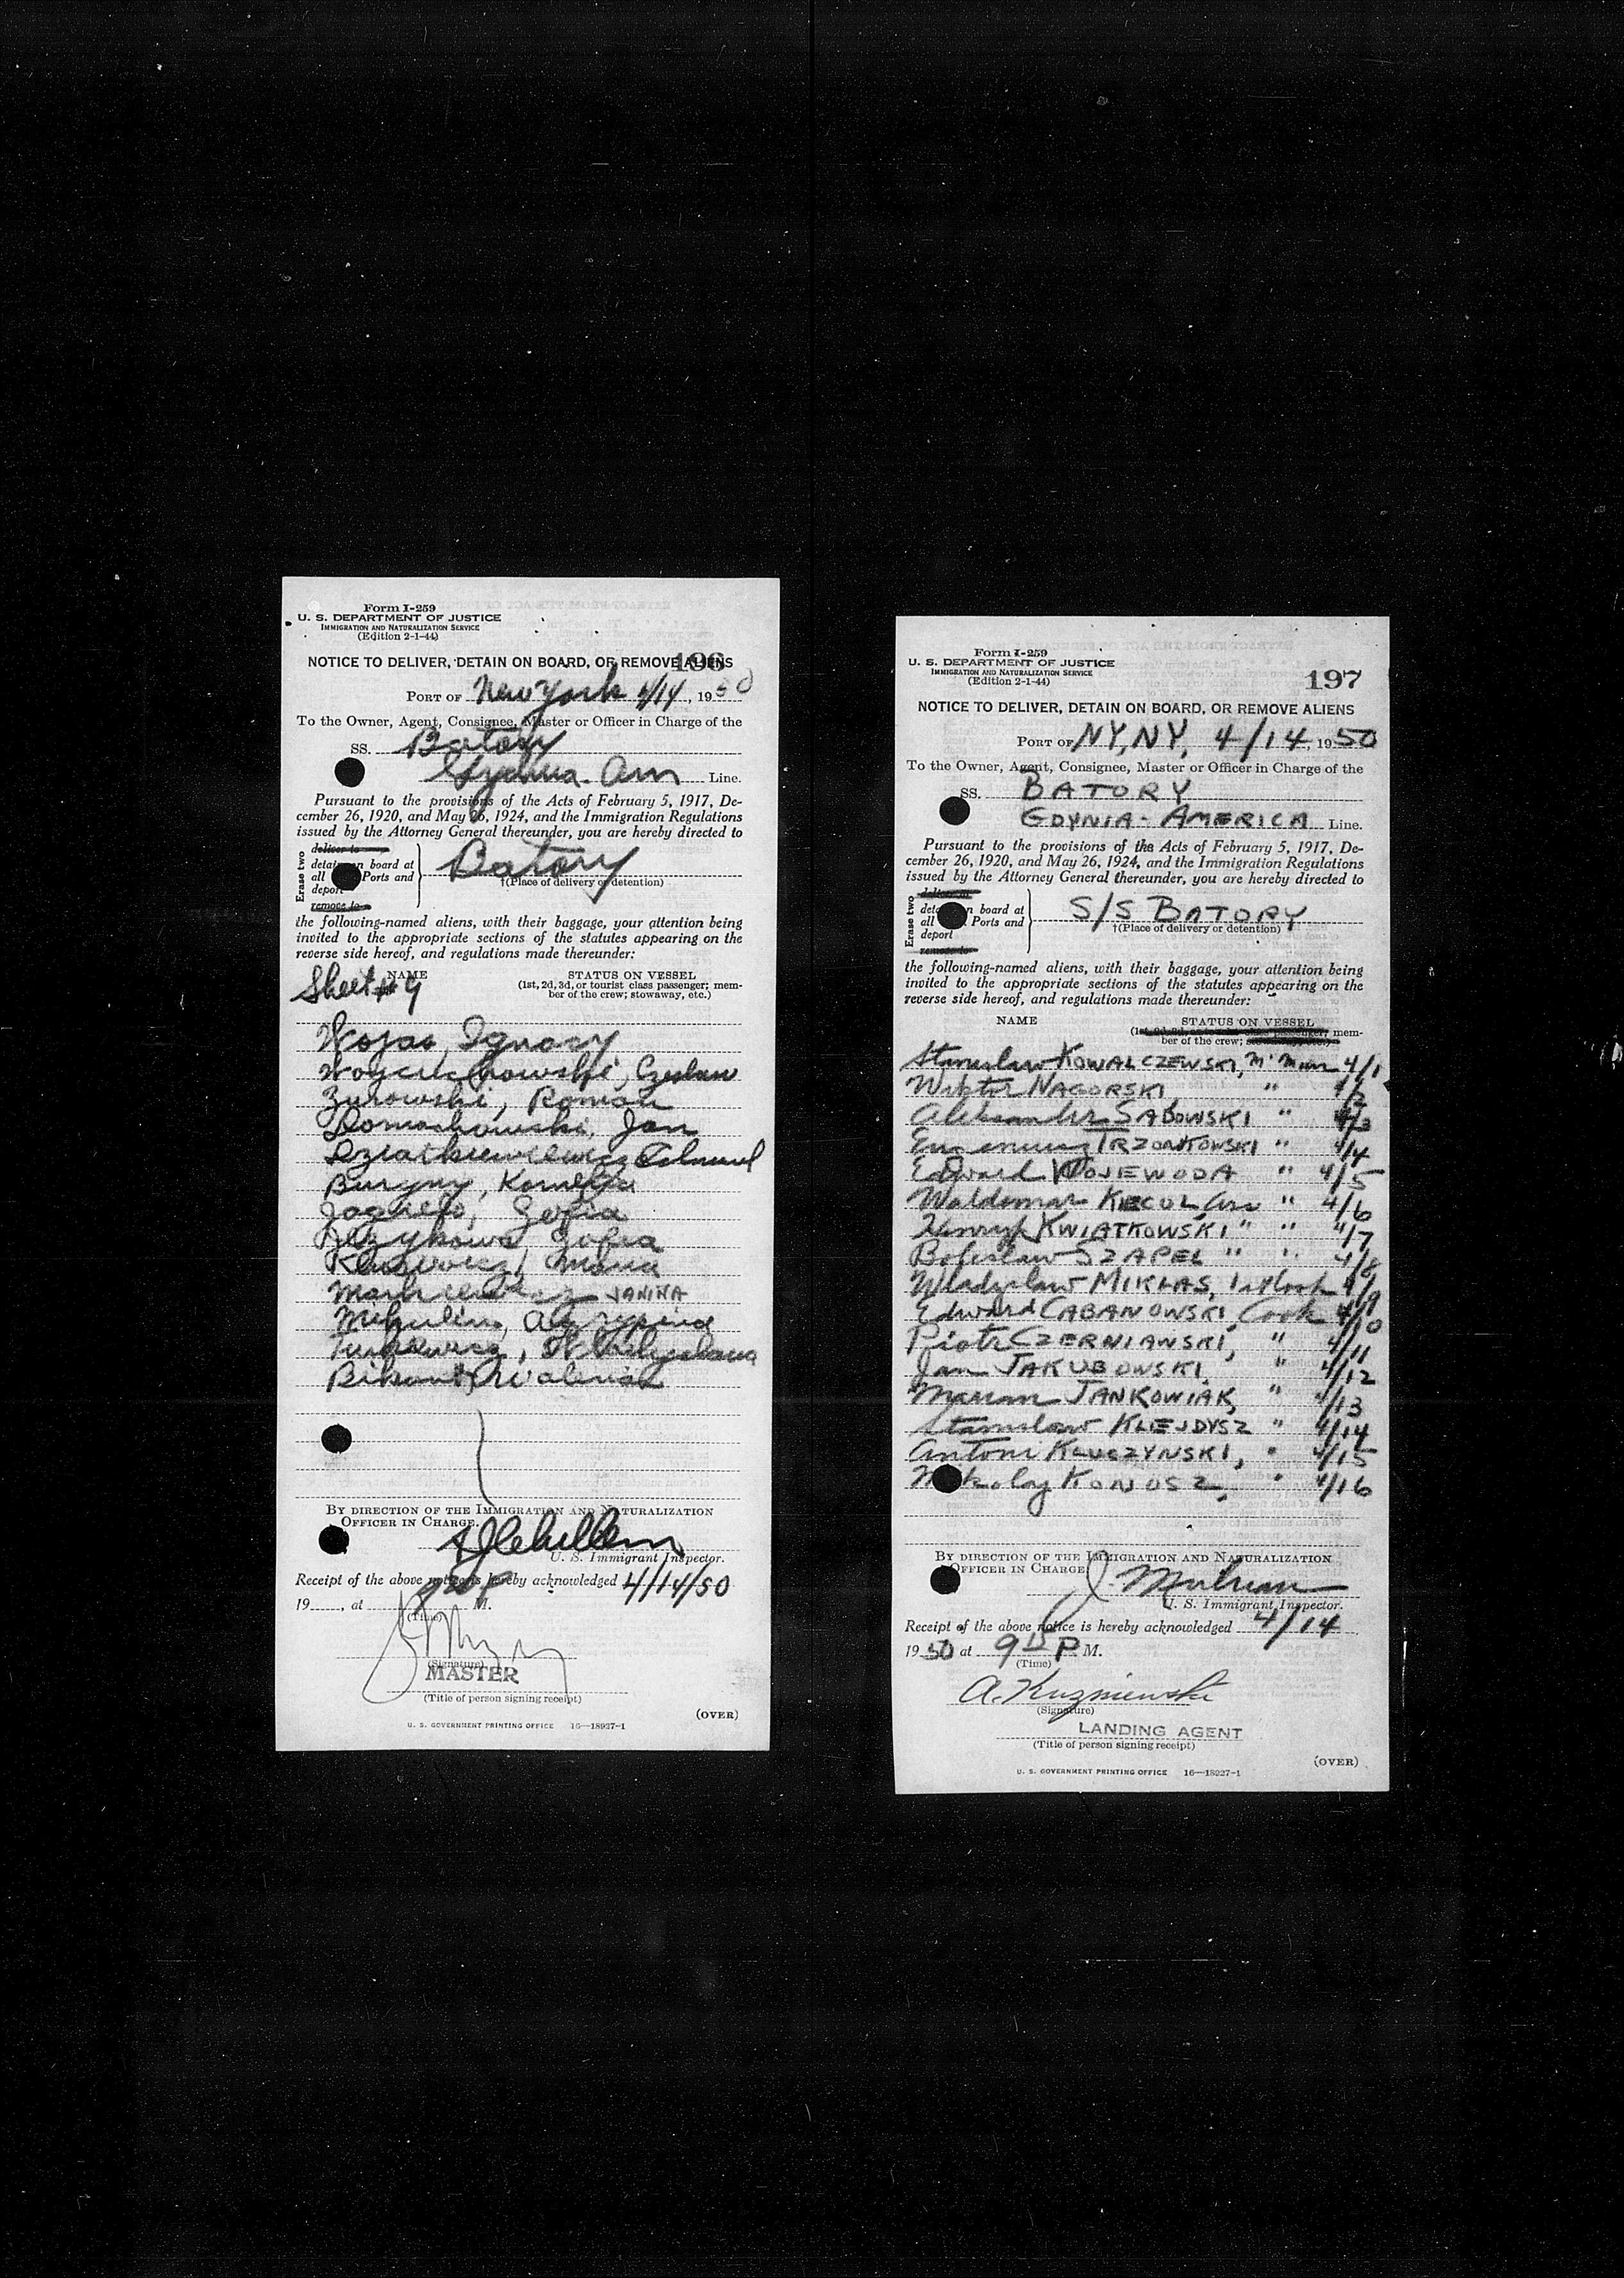 Form I-259
U. S. DEPARTMENT OF JUSTICE
IMMIGRATION AND NATURALIZATION SERVICE
(Edition 2-1-44)
196
NOTICE TO DELIVER, DETAIN ON BOARD, OR REMOVE ALIENS
PORT OF New York 4/14, 1950
To the Owner, Agent, Consignee, Master or Officer in Charge of the
SS. Batory
Gydnia-Am Line.
Pursuant to the provisions of the Acts of February 5, 1917, De-
cember 26, 1920, and May 26, 1924, and the Immigration Regulations
issued by the Attorney General thereunder, you are hereby directed to
Erase two
deliver to
detain on board at
all Ports and
deport
remove to
Batory
†(Place of delivery or detention)
the following-named aliens, with their baggage, your attention being
invited to the appropriate sections of the statutes appearing on the
reverse side hereof, and regulations made thereunder:
NAME STATUS ON VESSEL
Sheet # 9 (1st, 2d, 3d, or tourist class passenger; mem-
ber of the crew; stowaway, etc.)
Wojas, Ignacy
Czeslaw
Zurowski, Roman
Domachowski, Jan
Buryny, Kornelia
Jagiello, Zofia
Zofia
Maria
JANINA
Mikulin,
BY DIRECTION OF THE IMMIGRATION AND NATURALIZATION
OFFICER IN CHARGE.
U. S. Immigrant Inspector.
Receipt of the above notice is hereby acknowledged 4/14/50
19____, at M.
(Time)
(Signature)
MASTER
(Title of person signing receipt)
(OVER)
U. S. GOVERNMENT PRINTING OFFICE 16—18927-1
Form I-259
U. S. DEPARTMENT OF JUSTICE
IMMIGRATION AND NATURALIZATION SERVICE
(Edition 2-1-44)
197
NOTICE TO DELIVER, DETAIN ON BOARD, OR REMOVE ALIENS
PORT OF NY, NY, 4/14, 1950
To the Owner, Agent, Consignee, Master or Officer in Charge of the
SS. BATORY
GDYNIA-AMERICA Line.
Pursuant to the provisions of the Acts of February 5, 1917, De-
cember 26, 1920, and May 26, 1924, and the Immigration Regulations
issued by the Attorney General thereunder, you are hereby directed to
Erase two
deliver to
detain on board at
all Ports and
deport
remove to
S/S BATORY
†(Place of delivery or detention)
the following-named aliens, with their baggage, your attention being
invited to the appropriate sections of the statutes appearing on the
reverse side hereof, and regulations made thereunder:
NAME STATUS ON VESSEL
(1st, 2d, 3d, or tourist class passenger; mem-
ber of the crew; stowaway, etc.)
Stanislaw KOWALCZEWSKI, M'man 4/1
Wiktor NAGORSKI, " 4/2
Aleksander SADOWSKI " 4/3
Eugeniusz TRZONKOWSKI " 4/4
Edward WOJEWODA " 4/5
Waldemar KIECOL, " 4/6
Henryk KWIATKOWSKI " " 4/7
Boleslaw SZAPEL " " 4/8
Wladyslaw MIKLAS, 4/9
Edward CABANOWSKI, Cook 4/10
Piotr CZERNIANSKI, " 4/11
Jan JAKUBOWSKI, " 4/12
Marian JANKOWIAK, " 4/13
Stanislaw KLEJDYSZ " 4/14
Antoni KLUCZYNSKI, " 4/15
Mikolaj KONOSZ, " 4/16
BY DIRECTION OF THE IMMIGRATION AND NATURALIZATION
OFFICER IN CHARGE.
U. S. Immigrant Inspector.
Receipt of the above notice is hereby acknowledged 4/14
1950 at 9 15 P M.
(Time)
A. Kuzniewski
(Signature)
LANDING AGENT
(Title of person signing receipt)
(OVER)
U. S. GOVERNMENT PRINTING OFFICE 16—18927-1